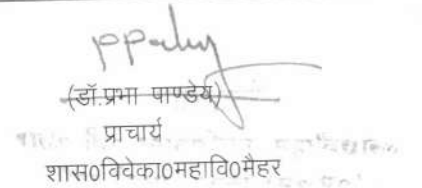 (डॉ.प्रभा पाण्डेय)
प्राचार्य
शास0विवेका0महावि0मैहर